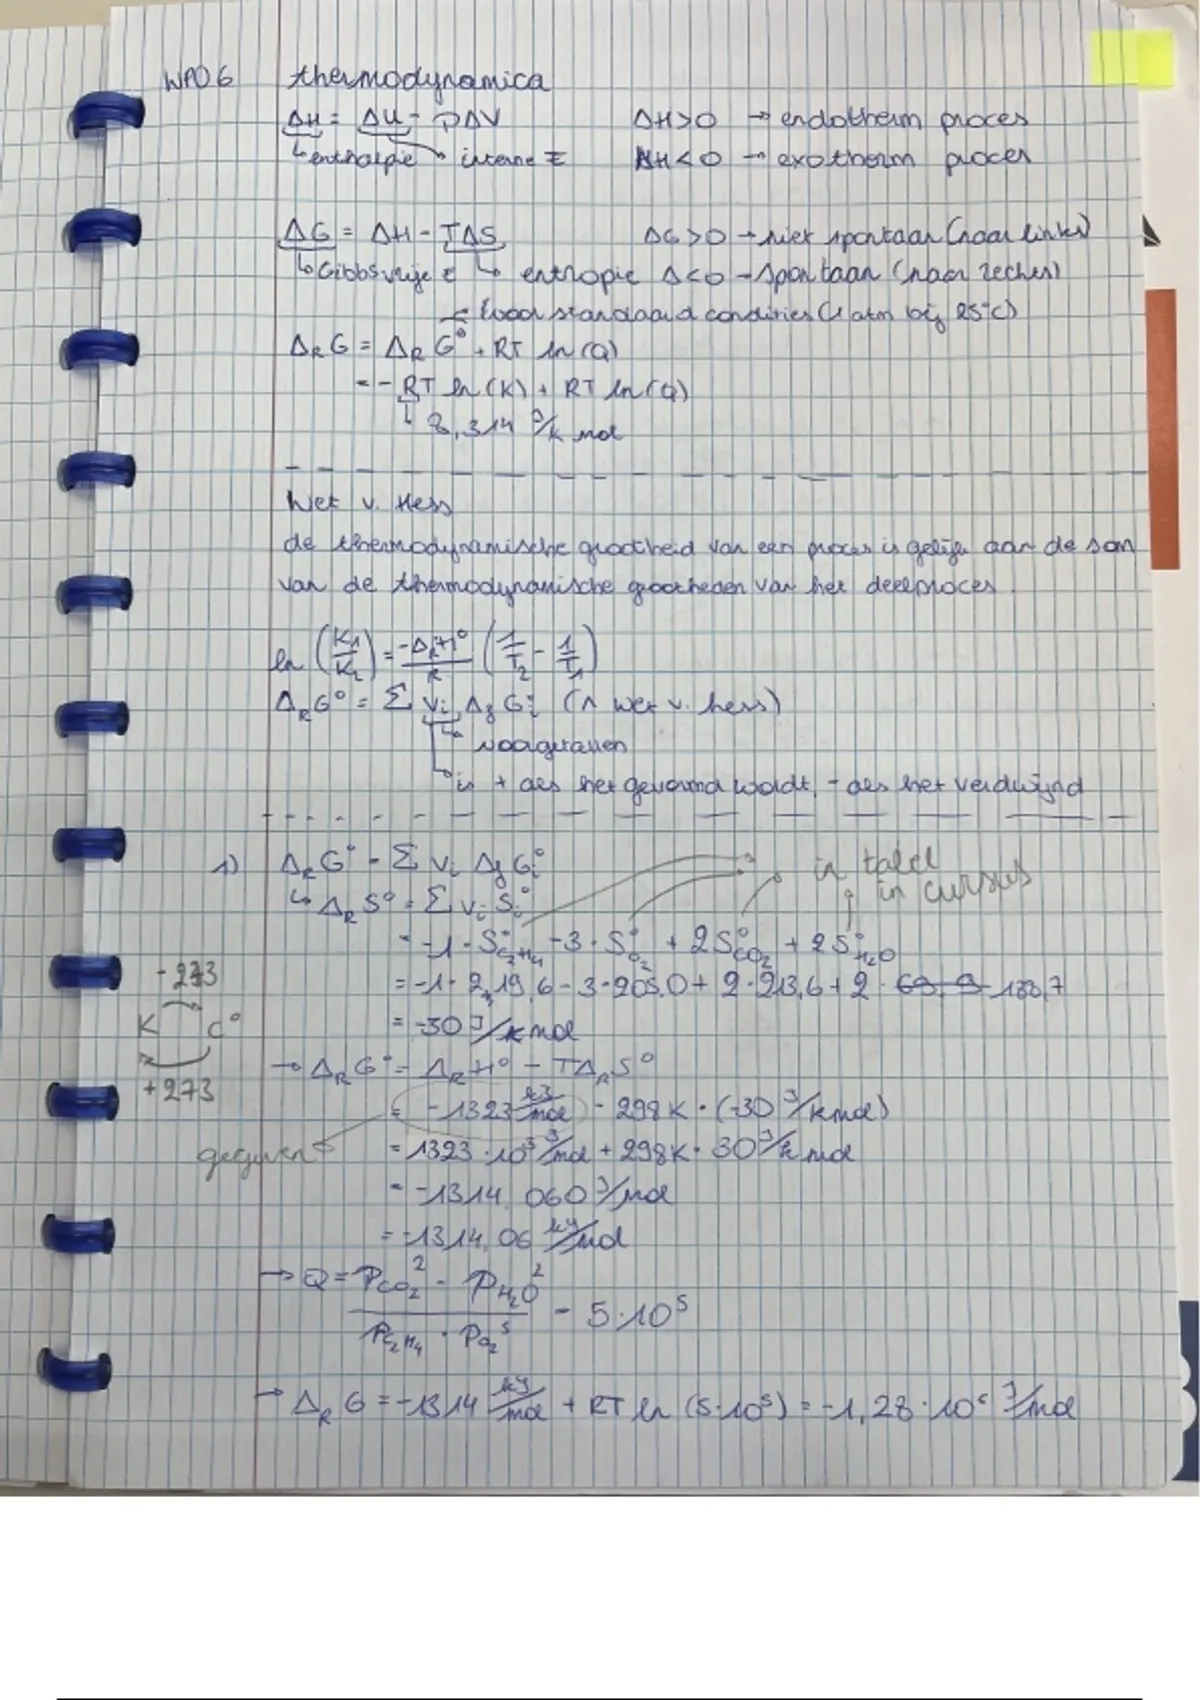 WPO 6 thermodynamica
ΔH = ΔU - PΔV ΔH>0 → endotherm proces
↳ enthalpie ↘ interne E ΔH<0 → exotherm proces
ΔG = ΔH - TΔS ΔG>0 → niet spontaan (naar links)
↳ Gibbs vrije E ↳ entropie Δ<0 → spontaan (naar rechts)
voor standaard condities (1 atm bij 25°C)
Δ_R G = Δ_R G° + RT ln(Q)
= - RT ln(K) + RT ln(Q)
↳ 8,314 J/K mol
Wet v. Hess
de thermodynamische grootheid van een proces is gelijk aan de som
van de thermodynamische grootheden van het deelproces.
ln (K₁/K₂) = -Δ_R H°/R (1/T₂ - 1/T₁)
Δ_R G° = Σ νᵢ Δ_f Gᵢ° (∧ wet v. hess)
↳ voorgetallen
↳ is + als het gevormd wordt, - als het verdwijnd
1) Δ_R G° = Σ νᵢ Δ_f Gᵢ° in tabel
↳ Δ_R S° = Σ νᵢ Sᵢ° in cursus
= -1 · S°_C₂H₄ - 3 · S°_O₂ + 2 S°_CO₂ + 2 S°_H₂O
= -1 · 219,6 - 3 · 205,0 + 2 · 213,6 + 2 · 69,9 188,7
= -30 J/K mol
-273
K C°
+273
→ Δ_R G° = Δ_R H° - TΔ_R S°
= -1323 kJ/mol - 298K · (-30 J/K mol)
gegeven
= 1323 · 10³ J/mol + 298K · 30 J/K mol
= -1314 060 J/mol
= -1314,06 kJ/mol
→ Q = P_CO₂² · P_H₂O² / P_C₂H₄ · P_O₂³ = 5·10⁵
→ Δ_R G = -1314 kJ/mol + RT ln (5·10⁵) = -1,28 · 10⁶ J/mol